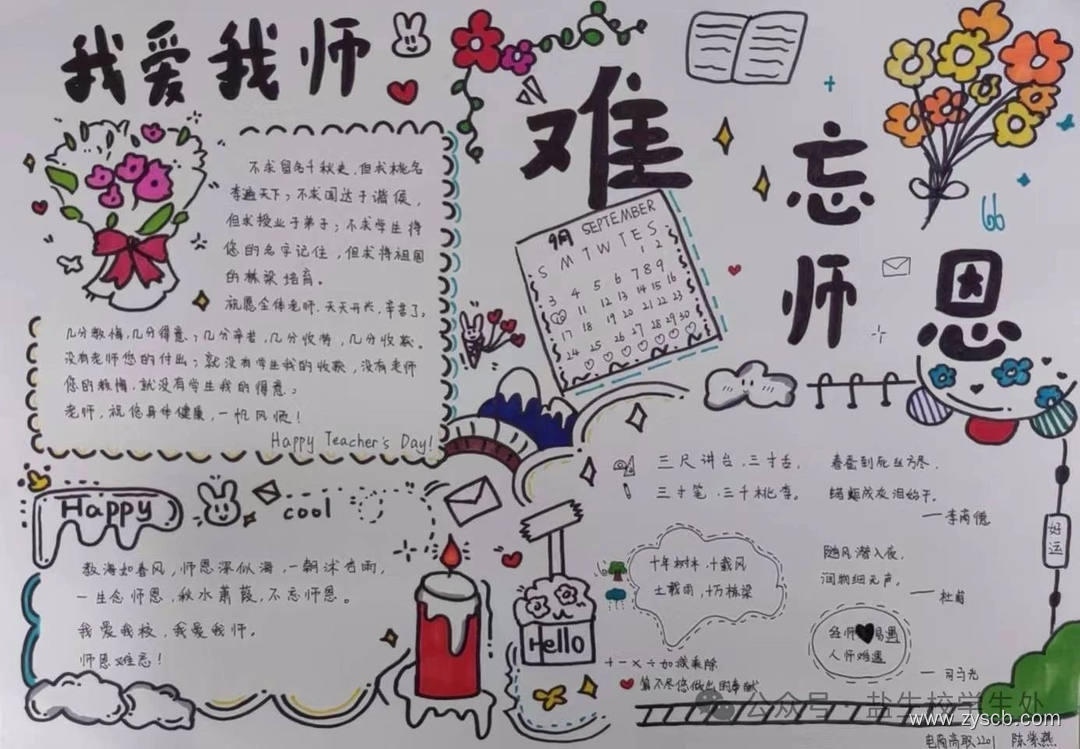 我爱我师
难
忘
师
恩
不求留名千秋史,但求桃名
李遍天下;不求闻达于诸侯,
但求授业于弟子;不求学生将
您的名字记住,但求将祖国
的栋梁培育。
祝愿全体老师,天天开兴,辛苦了。
几分教悔,几分得意;几分辛苦,几分收特,几分收获。
没有老师您的付出;就没有学生我的收获,没有老师
您的教悔,就没有学生我的得意;
老师,祝您身体健康,一帆风顺!
Happy Teacher's Day!
9月 SEPTEMBER
S M T W T E S
1 2
3 4 5 6 7 8 9
11 12 13 14 15 16
17 18 19 20 21 22 23
24 25 26 27 28 29 30
66
Happy
cool
教海如春风,师恩深似海,一朝沐杏雨,
一生念师恩,秋水蒹葭,不忘师恩。
我爱我校,我爱我师。
师恩难忘!
Hello
三尺讲台,三寸舌,
三寸笔,三千桃李。
春蚕到死丝方尽,
蜡炬成灰泪始干。
——李商隐
十年树木,十载风
十载雨,十万栋梁
随风潜入夜,
润物细无声。
——杜甫
经师易遇
人师难遇
——司马光
+-×÷加减乘除
算不尽您做出的奉献
好运
公众号·盐生校学生处
www.zyscb.com
电商高职2201 陈紫燕